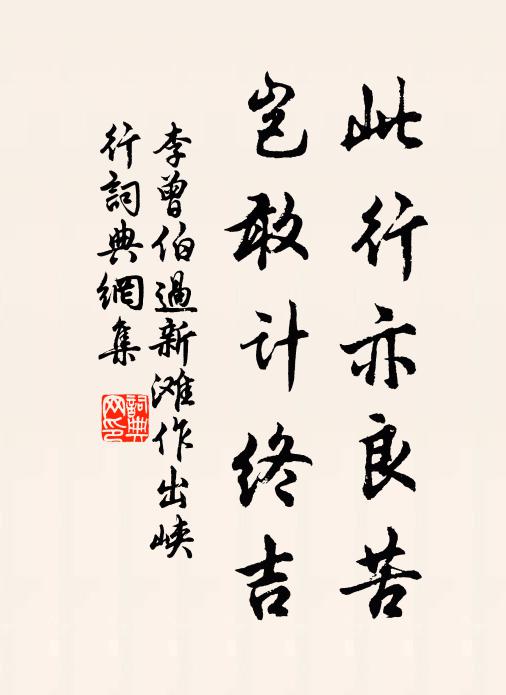 此行亦良苦
岂敢计终吉
李曾伯過新滩作出峡
行詞典網集
詞典
网印